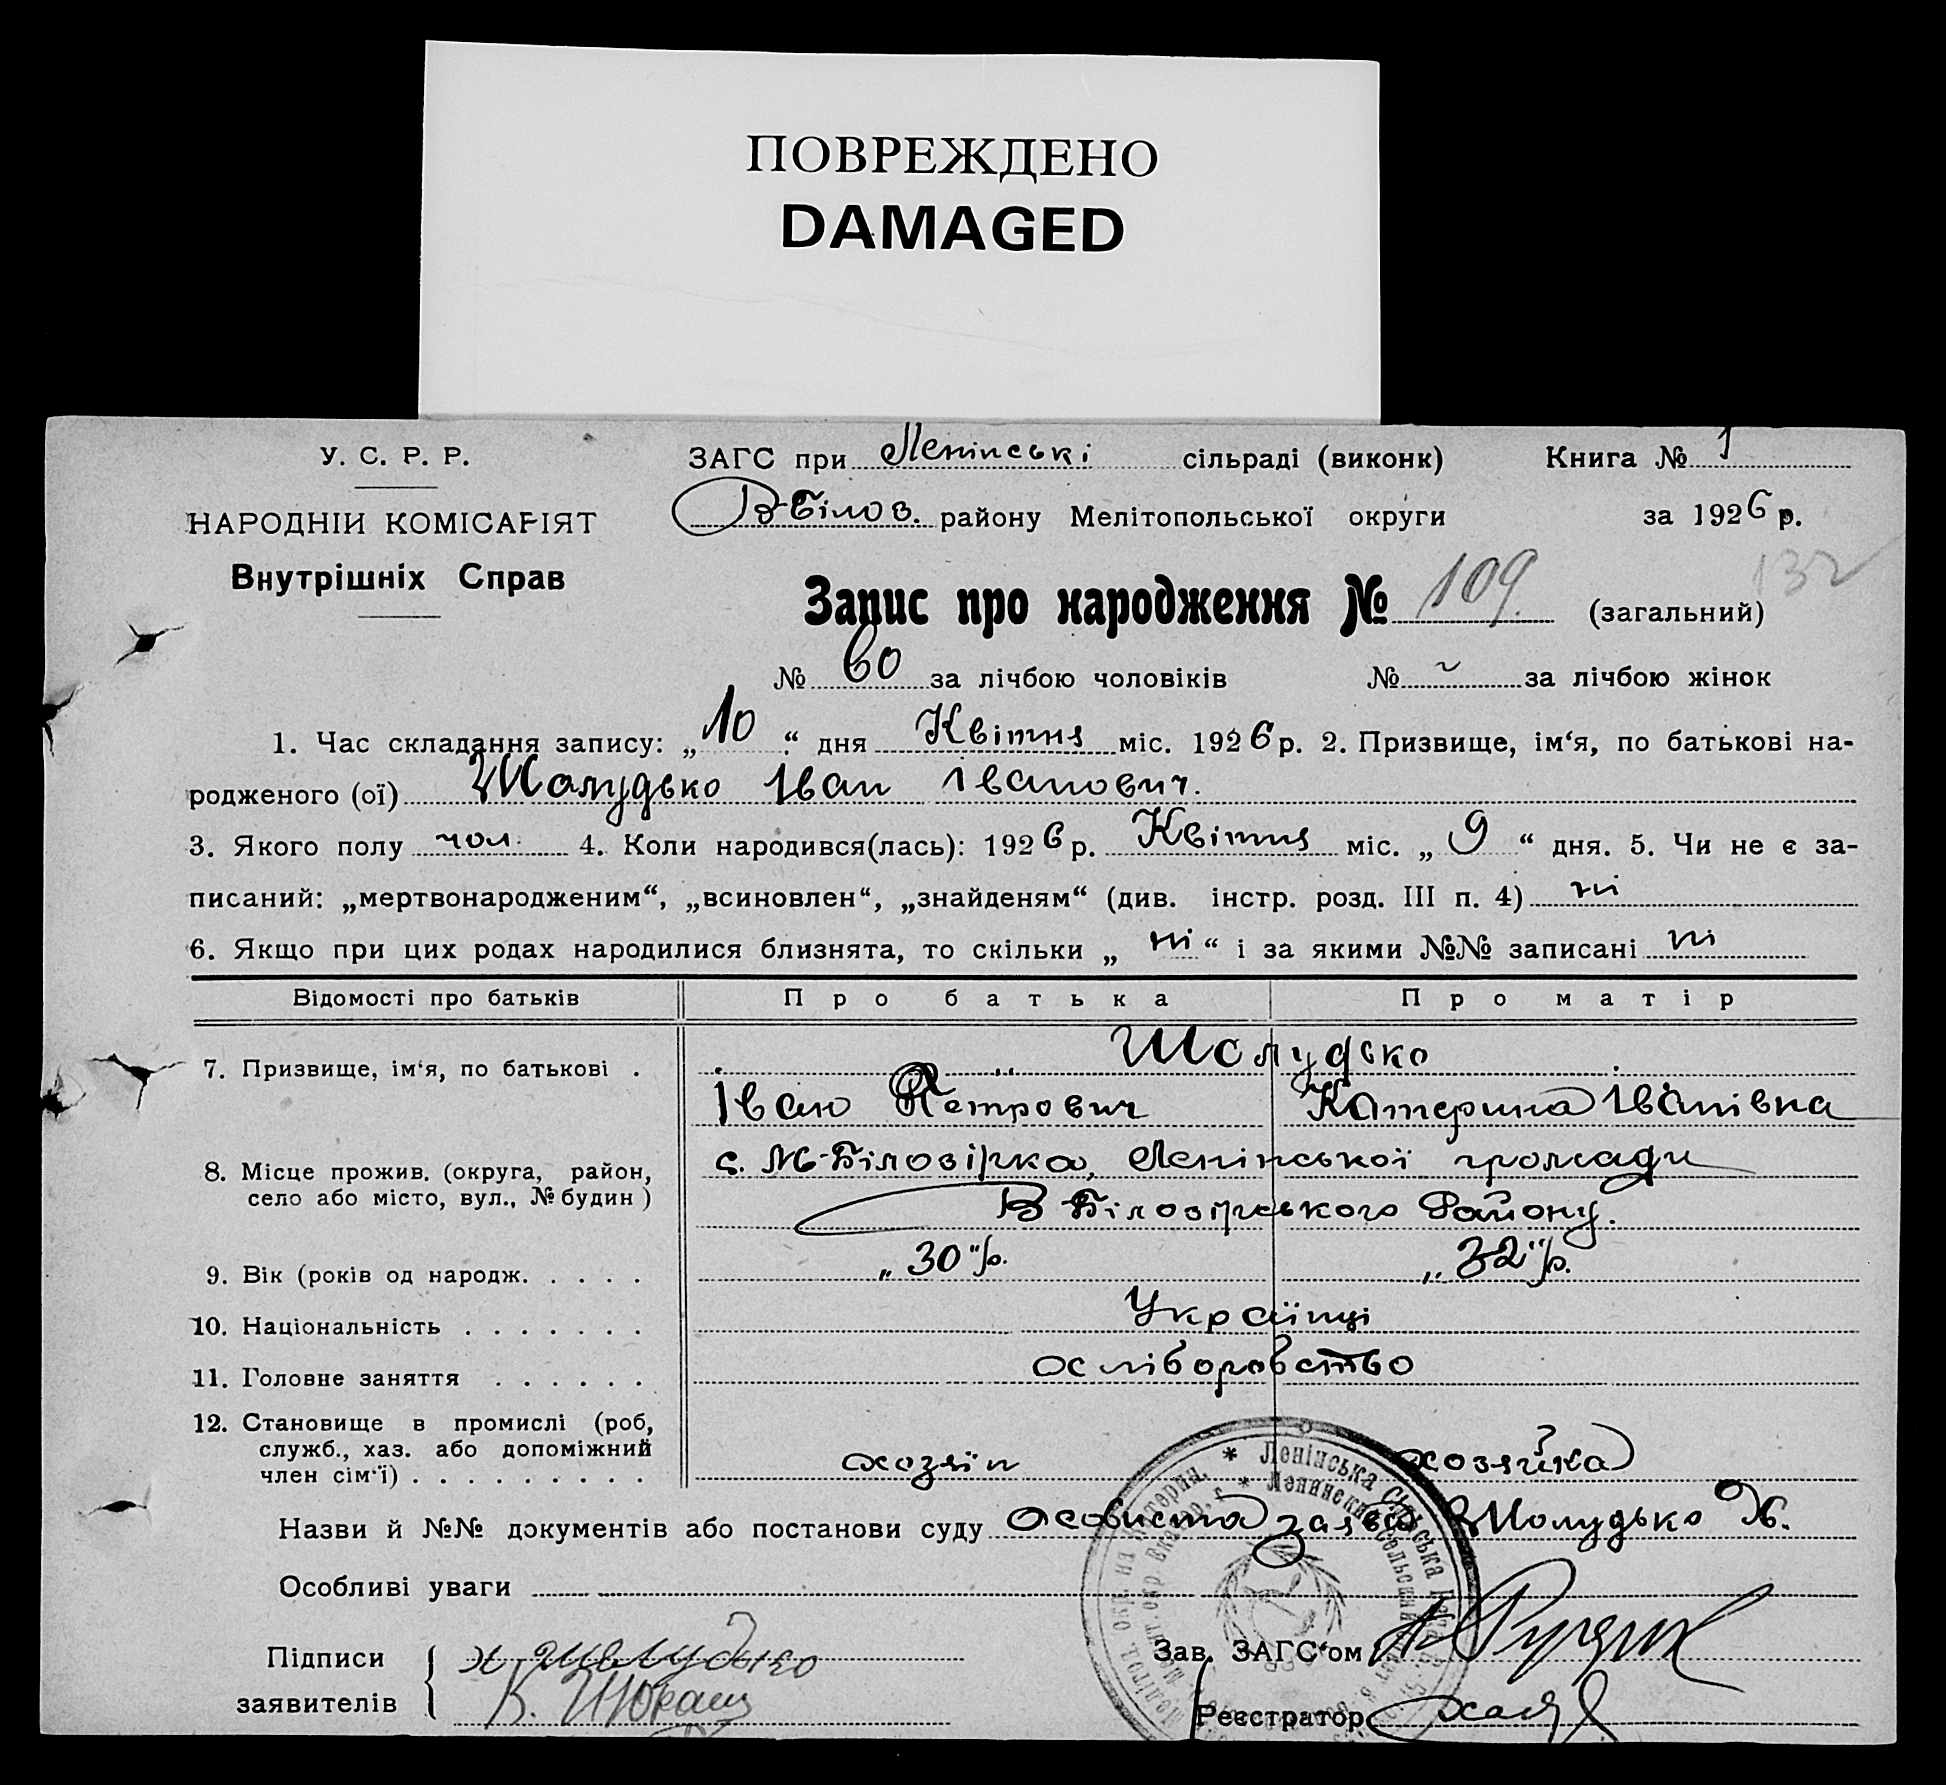 ПОВРЕЖДЕНО
DAMAGED
У. С. Р. Р.
ЗАГС при Ленінські сільраді (виконк) Книга № 1
НАРОДНІЙ КОМІСАРІЯТ
В-Білов. району Мелітопольської округи за 1926 р.
Внутрішніх Справ
132
Запис про народження № 109. (загальний)
№ 60 за лічбою чоловіків № за лічбою жінок
1. Час складання запису: „ 10 “ дня Квітня міс. 1926 р. 2. Призвище, ім‘я, по батькові на-
родженого (ої) Шолудько Іван Іванович.
3. Якого полу чол. 4. Коли народився(лась): 1926 р. Квітня міс. „ 9 “ дня. 5. Чи не є за-
писаний: „мертвонародженим“, „всиновлен“, „знайденям“ (див. інстр. розд. III п. 4) ні
6. Якщо при цих родах народилися близнята, то скільки „ ні “ і за якими №№ записані ні
Відомості про батьків Про батька Про матір
7. Призвище, ім‘я, по батькові . Шолудько
Іван Петрович Катерина Іванівна
8. Місце прожив. (округа, район, с. М-Білозірка, Ленінської громади
село або місто, вул., № будин ) В Білозірського Району.
9. Вік (років од народж. . . . . „30“ р. „32“ р.
10. Національність . . . . . . . Українці
11. Головне заняття . . . . . . хліборобство
12. Становище в промислі (роб,
служб., хаз. або допоміжний
член сім‘ї) . . . . . . . . . хозяїн хозяйка
Назви й №№ документів або постанови суду Особиста заява Шолудько К.
Особливі уваги
Підписи
заявителів
Зав. ЗАГС‘ом
Реєстратор
Ленінська сільська Рада